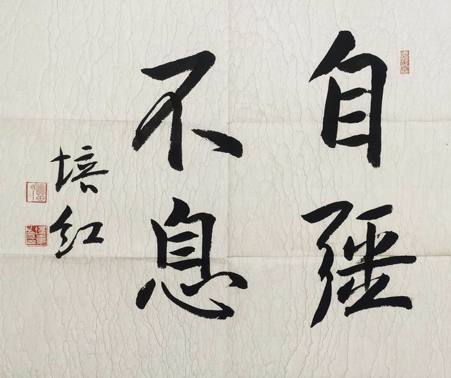 自彊
不息
培红